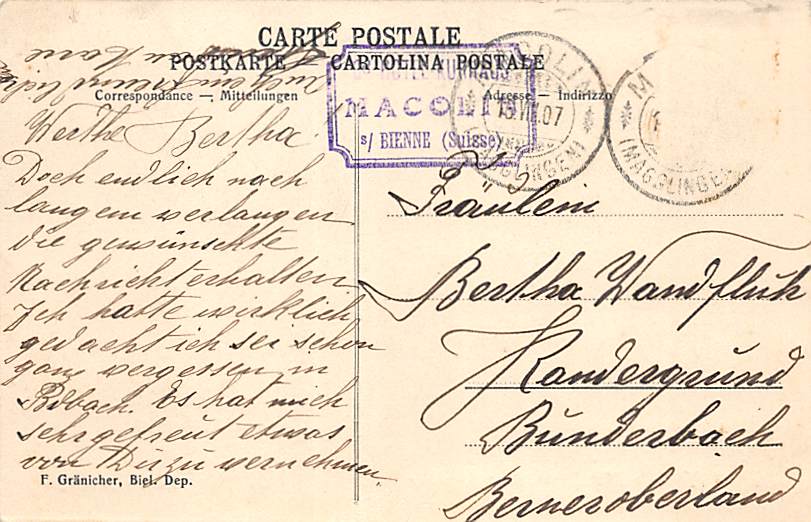 CARTE POSTALE
POSTKARTE CARTOLINA POSTALE
Correspondance — Mitteilungen
Adresse — Indirizzo
KURHAUS
MACOLIN
s/ BIENNE (Suisse)
MACOLIN
15 VII 07
(MAGGLINGEN)
M
(MAGGLINGEN
Werthe Bertha!
Doch endlich nach
langem verlangen
die gewünschte
Nachricht erhalten
Ich hatte wirklich
gedacht ich sei schon
ganz vergessen in
Es hat mich
sehr gefreut etwas
von Du zu vernehmen.
Fräulein
Bertha Wandfluh
Kandergrund
Bunderbach
Berneroberland
F. Gränicher, Biel. Dep.